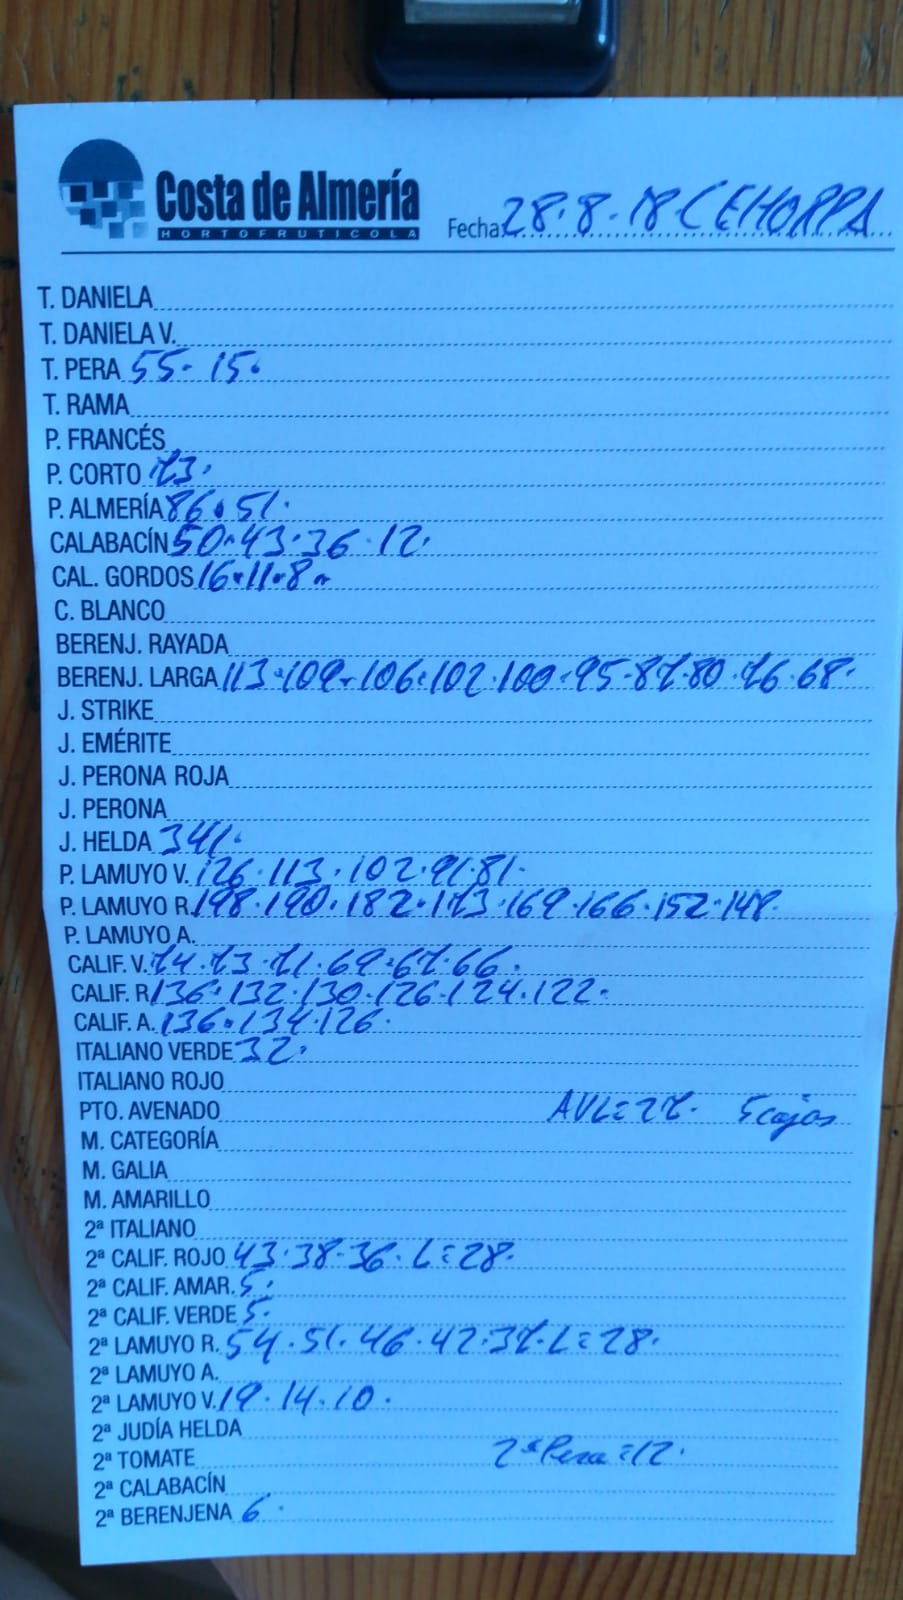 Costa de Almería
HORTOFRUTICOLA
Fecha: 28.8.18 CEHORPA
T. DANIELA
T. DANIELA V.
T. PERA 55. 15.
T. RAMA
P. FRANCÉS
P. CORTO 73.
P. ALMERÍA 86.51.
CALABACÍN 50.43.36.12.
CAL. GORDOS 16.11.8.
C. BLANCO
BERENJ. RAYADA
BERENJ. LARGA 113.109.106.102.100.95.87.80.76.68.
J. STRIKE
J. EMÉRITE
J. PERONA ROJA
J. PERONA
J. HELDA 341.
P. LAMUYO V. 126.113.102.91.81.
P. LAMUYO R. 198.190.182.173.169.166.152.148.
P. LAMUYO A.
CALIF. V. 74.73.71.69.67.66.
CALIF. R 136.132.130.126.124.122.
CALIF. A. 136.134.126.
ITALIANO VERDE 32.
ITALIANO ROJO
PTO. AVENADO AVL=27. 5 cajas
M. CATEGORÍA
M. GALIA
M. AMARILLO
2ª ITALIANO
2ª CALIF. ROJO 43.38.36. L=28.
2ª CALIF. AMAR. 5.
2ª CALIF. VERDE 5.
2ª LAMUYO R. 54.51.46.42.37. L=28.
2ª LAMUYO A.
2ª LAMUYO V. 19.14.10.
2ª JUDÍA HELDA
2ª TOMATE 2ª Pera=12.
2ª CALABACÍN
2ª BERENJENA 6.